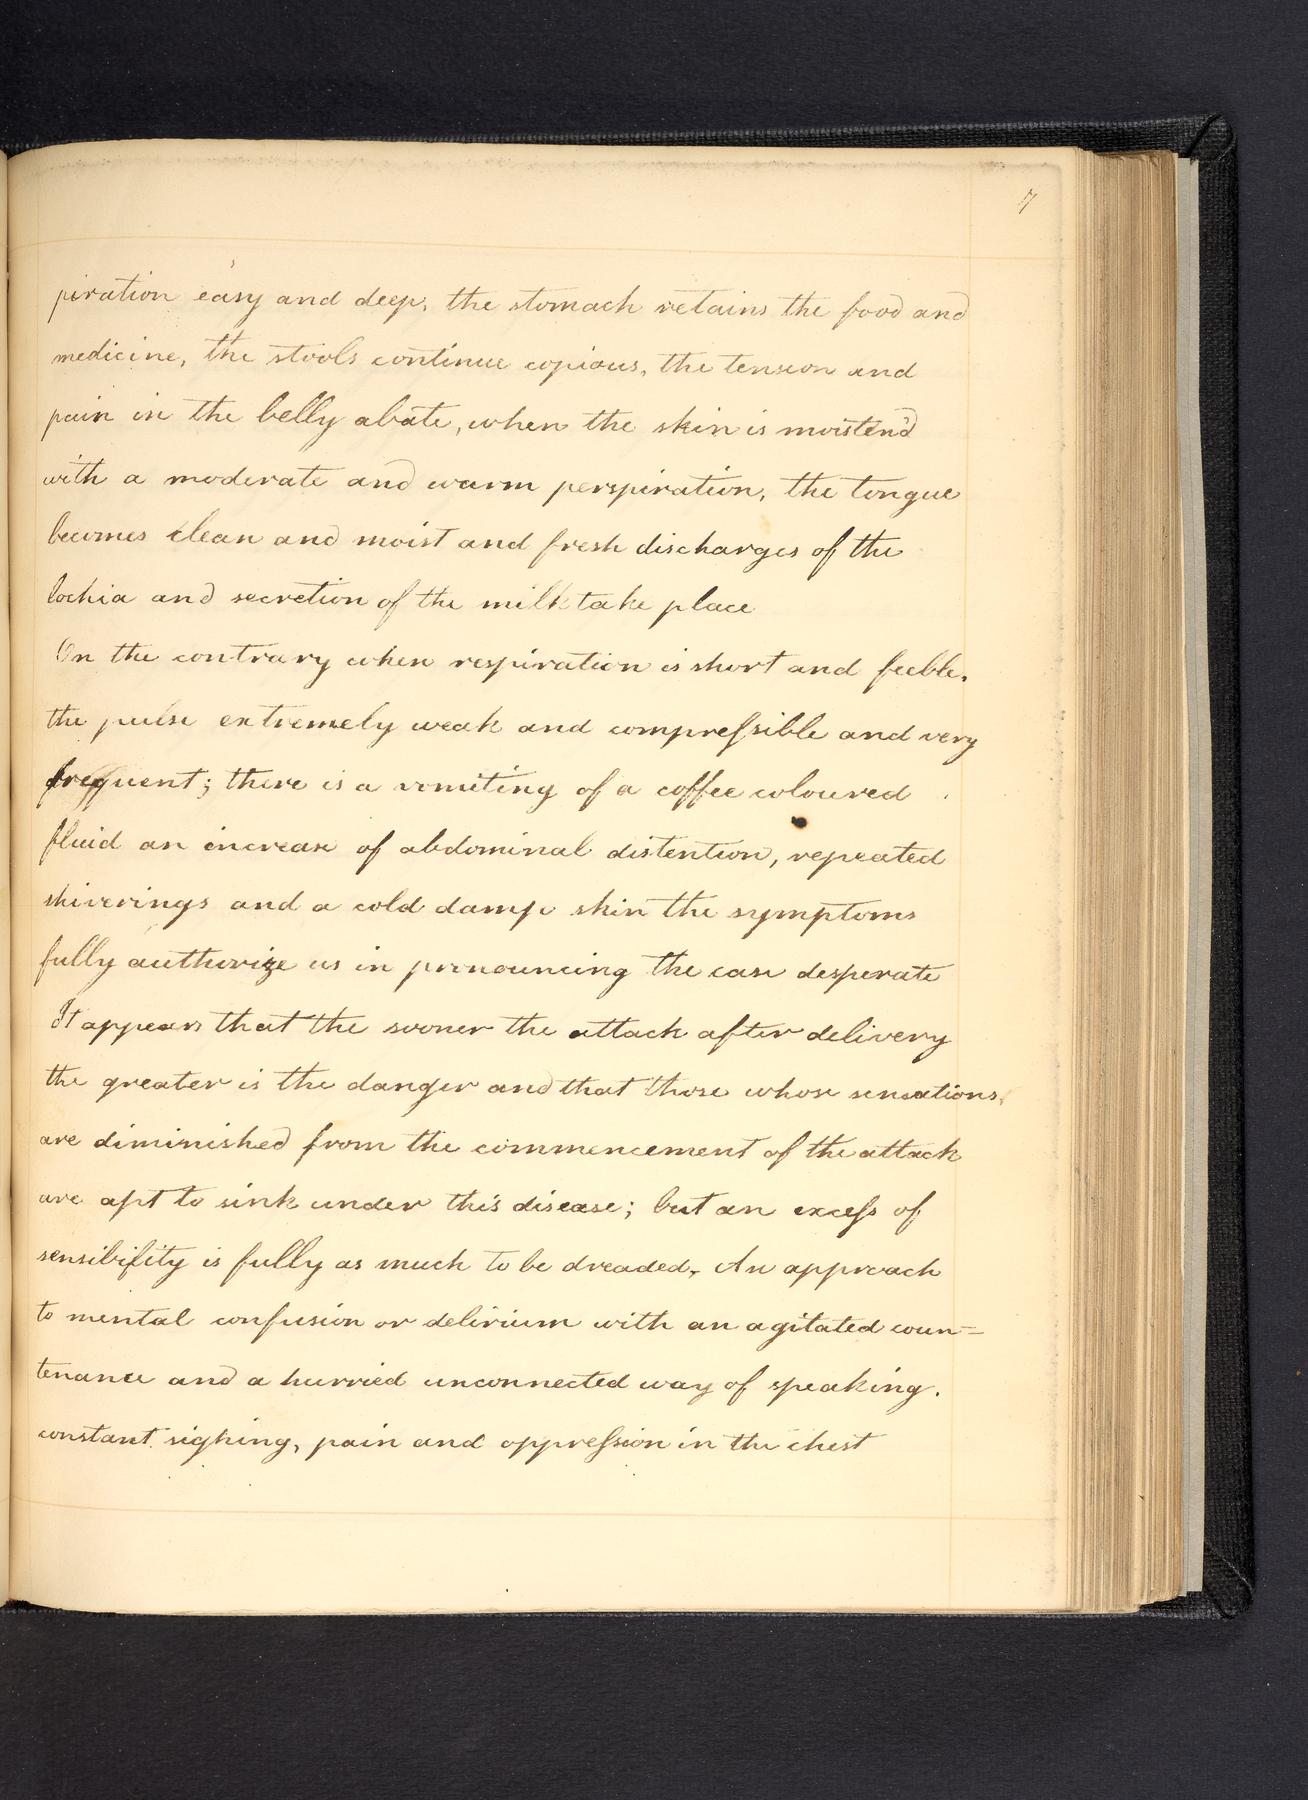 7
piration easy and deep, the stomach retains the food and
medicine, the stools continue copious, the tension and
pain in the belly abate, when the skin is moisten'd
with a moderate and warm perspiration, the tongue
becomes clean and moist and fresh discharges of the
lochia and secretion of the milk take place
On the contrary when respiration is short and feeble,
the pulse extremely weak and compreſsible and very
frequent; there is a vomiting of a coffee coloured
fluid an increase of abdominal distention, repeated
shiverings and a cold damp skin the symptoms
fully authorize us in pronouncing the case desperate
It appears that the sooner the attack after delivery
the greater is the danger and that those whose sensations
are diminished from the commencement of the attack
are apt to sink under this disease; but an exceſs of
sensibility is fully as much to be dreaded, An approach
to mental confusion or delirium with an agitated coun=
tenance and a hurried unconnected way of speaking.
constant sighing, pain and oppreſsion in the chest